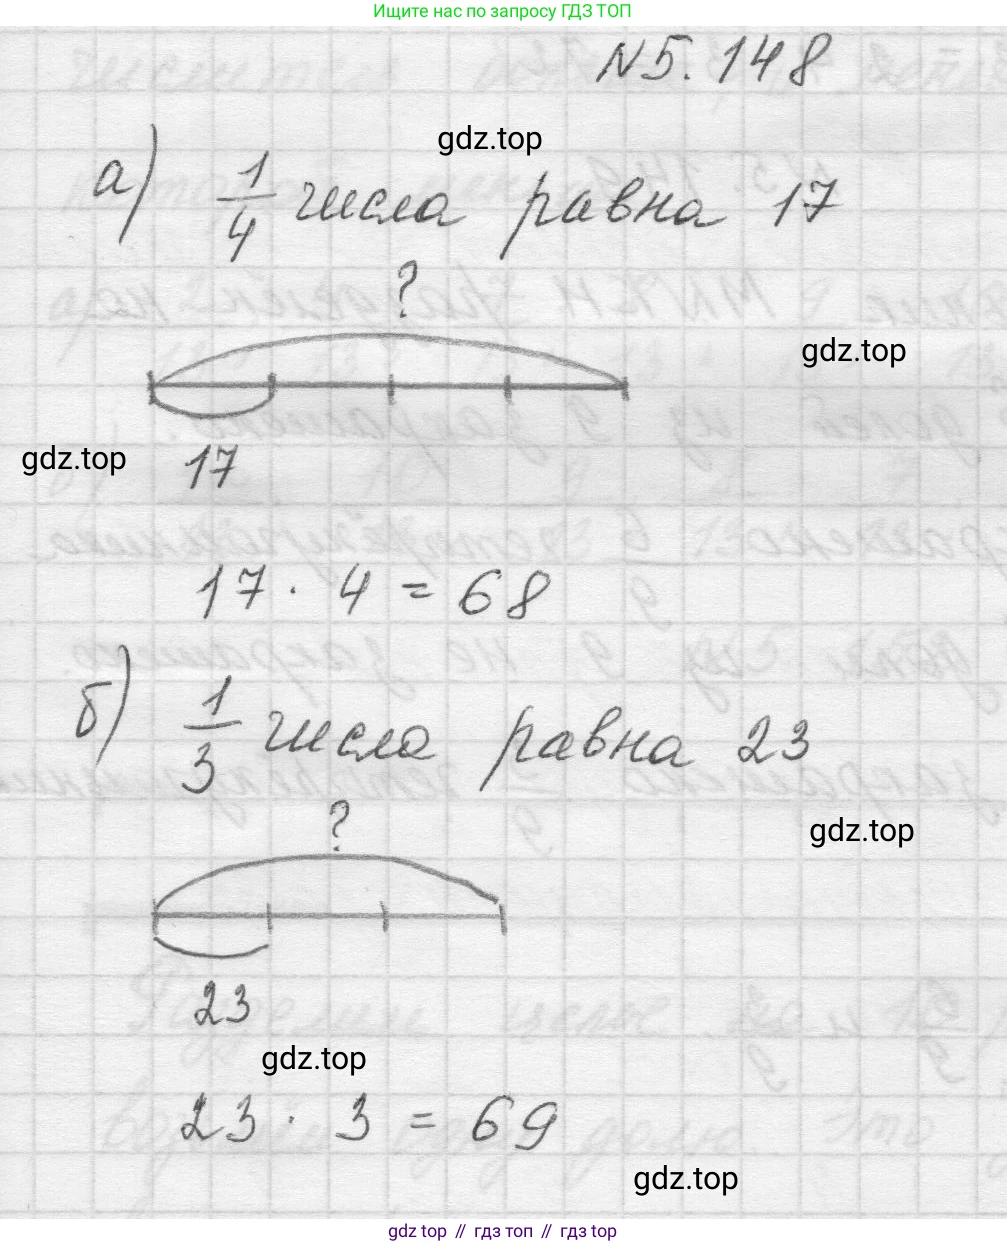 Ищите нас по запросу ГДЗ ТОП
N5.148
gdz.top
а) 1/4 числа равна 17
?
gdz.top
gdz.top
17
17 · 4 = 68
б) 1/3 числа равна 23
?
gdz.top
23
gdz.top
23 · 3 = 69
gdz.top
gdz top // гдз топ // гдз top